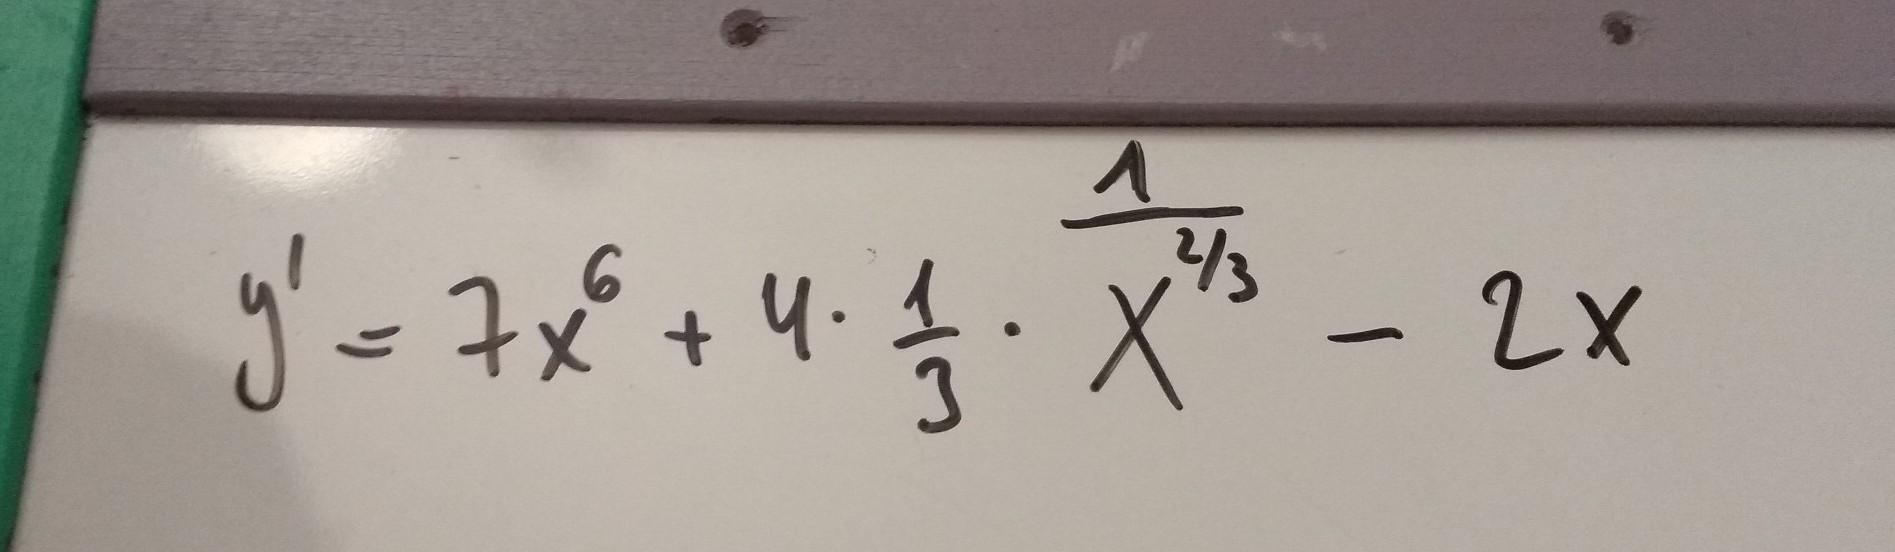 y' = 7x^6 + 4 · 1/3 · 1/x^(2/3) - 2x